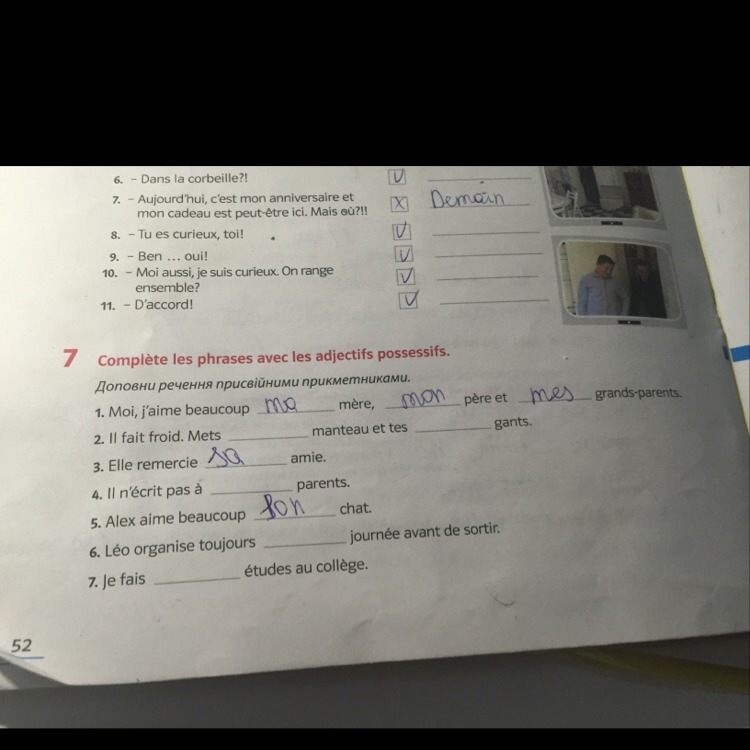 6. – Dans la corbeille?! V
7. – Aujourd'hui, c'est mon anniversaire et
mon cadeau est peut-être ici. Mais où?!! X Demain
8. – Tu es curieux, toi! V
9. – Ben ... oui! V
10. – Moi aussi, je suis curieux. On range
ensemble? V
11. – D'accord! V
7 Complète les phrases avec les adjectifs possessifs.
Доповни речення присвійними прикметниками.
1. Moi, j'aime beaucoup ma mère, mon père et mes grands-parents.
2. Il fait froid. Mets ________ manteau et tes ________ gants.
3. Elle remercie sa amie.
4. Il n'écrit pas à ________ parents.
5. Alex aime beaucoup son chat.
6. Léo organise toujours ________ journée avant de sortir.
7. Je fais ________ études au collège.
52